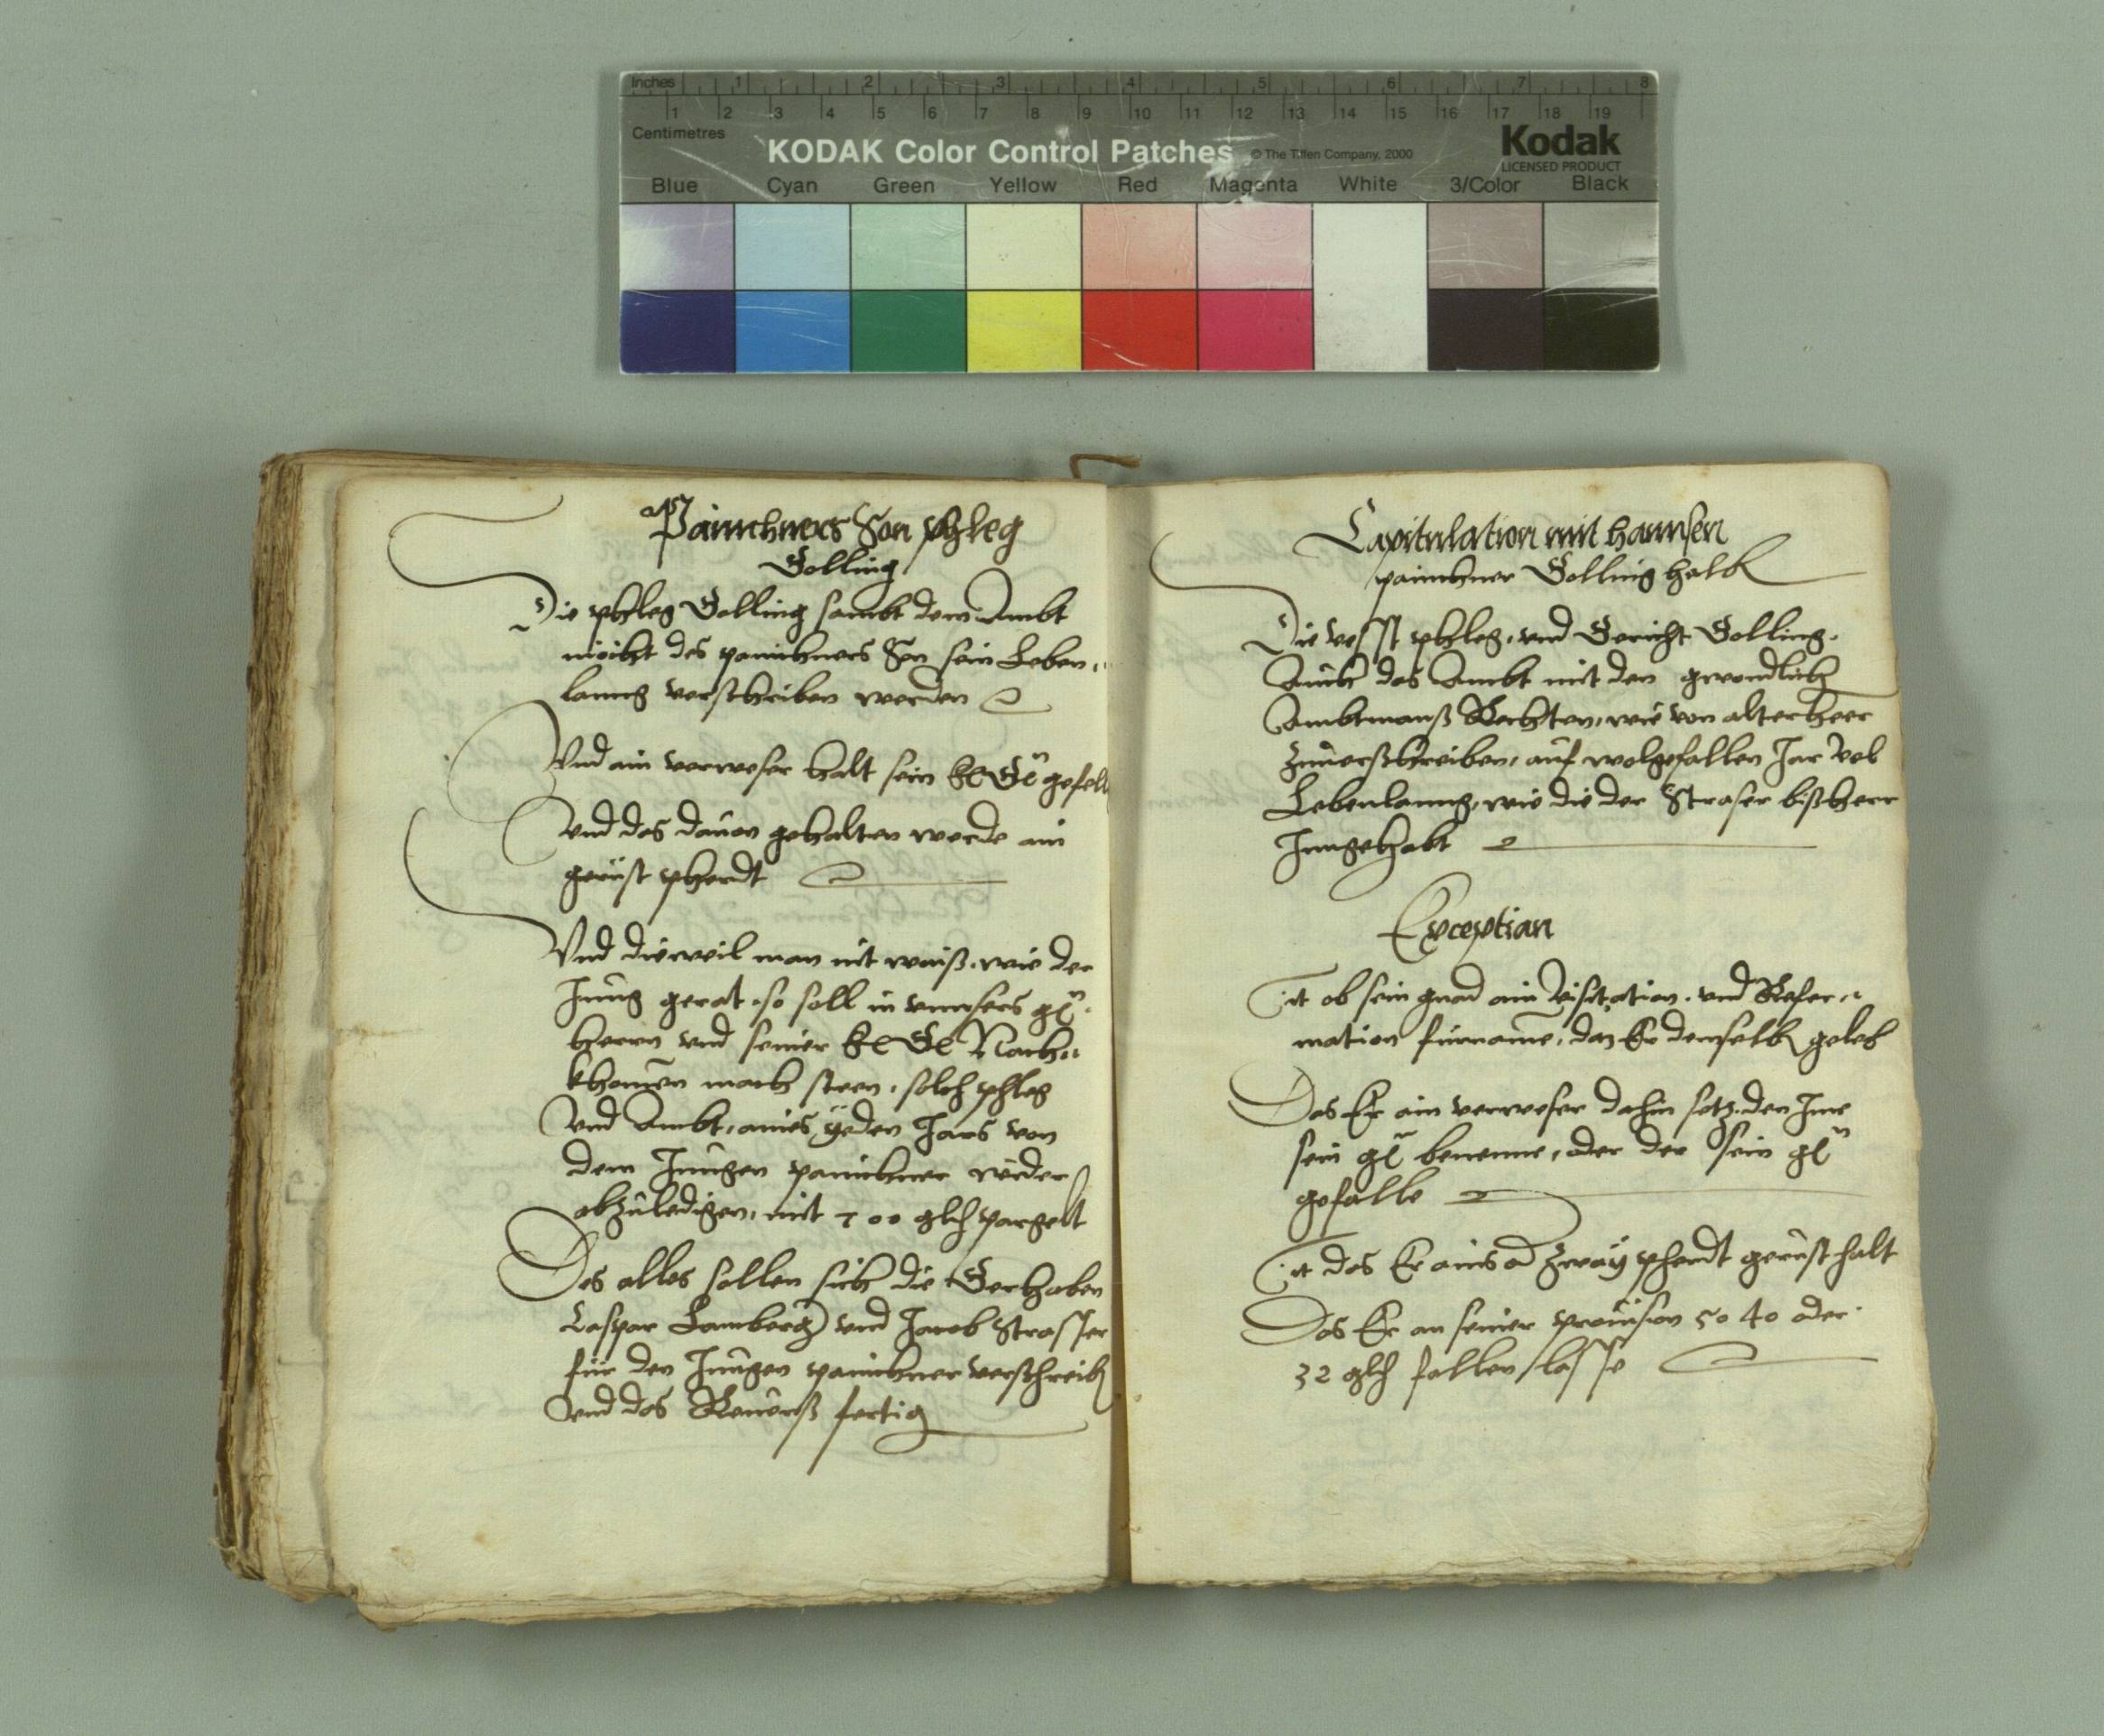 Inches 1 2 3 4 5 6 7 8
1 2 3 4 5 6 7 8 9 10 11 12 13 14 15 16 17 18 19
Centimetres
KODAK Color Control Patches © The Tiffen Company, 2000 Kodak
LICENSED PRODUCT
Blue Cyan Green Yellow Red Magenta White 3/Color Black
Panichners Son phleg
Golling
Die phleg Golling sambt dem Ambt
möcht des panichners Son sein Leben
lanng verschriben werden
Vnd ain verweser halt sein gefell
Vnd das dauon gehalten werde ain
gerüst pherdt
Vnd dieweil man nit waiß, wie der
Jung gerat, so soll in vnnsers
herrn vnd seiner Nach
khomen macht steen, solch phleg
Vnd Ambt, aines yeden Jars von
dem Jungen panichner wider
abzuledigen, mit 700 par gelt
Des alles sollen sich die Gerhaben
Caspar Lamberg vnd Jacob Strasser
für den Jungen panichner verschreiben
Vnd das Reuerß fertig
Capitulation mit hannsen
panichner Golling halb
Die vesst phleg, vnd Gericht Golling,
Auch das Ambt mit den gwondlich
Ambtmanß Rechten, wie von alterheer
zuuerschreiben, auf wolgefallen Jar vel
Lebenlanng, wie die der Straser bißheer
Inngehabt
Exception
It ob sein gnad ain Visitation, vnd Refor
mation fürname, daz Er denselb geleb
Das Er ain verweser dahin setz, den Ime
sein benenne, oder der sein
gefalle
It das Er ains od zway pherdt gerüst halt
Das Er an seiner prouision 50 40 oder
32 fallen lasse